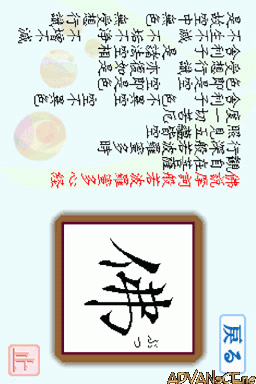 佛説摩訶般若波羅蜜多心経
観自在菩薩
行深般若波羅蜜多時
照見五蘊皆空
度一切苦厄
舎利子 色不異空 空不異色
色即是空 空即是色
受想行識 亦復如是
舎利子 是諸法空相
不生不滅 不垢不浄 不増不減
是故空中 無色 無受想行識
佛
ぶつ
戻る
止